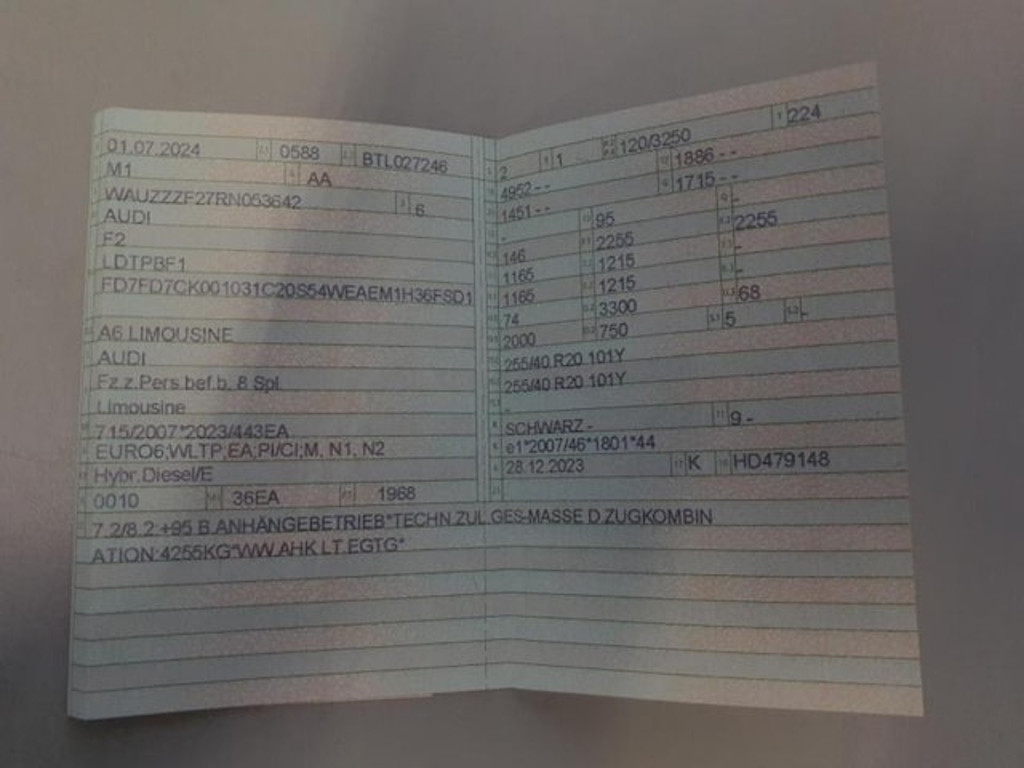 01.07.2024 0588 BTL027246
M1 AA
WAUZZZF27RN053642 6
AUDI
F2
LDTPBF1
FD7FD7CK001031C20S54WEAEM1H36FSD1
A6 LIMOUSINE
AUDI
Fz.z.Pers.bef.b. 8 Spl.
Limousine
715/2007*2023/443EA
EURO6;WLTP;EA;PI/CI;M, N1, N2
Hybr.Diesel/E
0010 36EA 1968
2 1 120/3250 224
4952-- 1886--
1451-- 1715--
- 95 -
146 2255 2255
1165 1215 -
1165 1215 -
74 3300 68
2000 750 5 -
255/40 R20 101Y
255/40 R20 101Y
-
SCHWARZ - 9 -
e1*2007/46*1801*44
28.12.2023 K HD479148
7.2/8.2:+95 B.ANHÄNGEBETRIEB*TECHN.ZUL.GES-MASSE D.ZUGKOMBIN
ATION:4255KG*WW.AHK LT.EGTG*